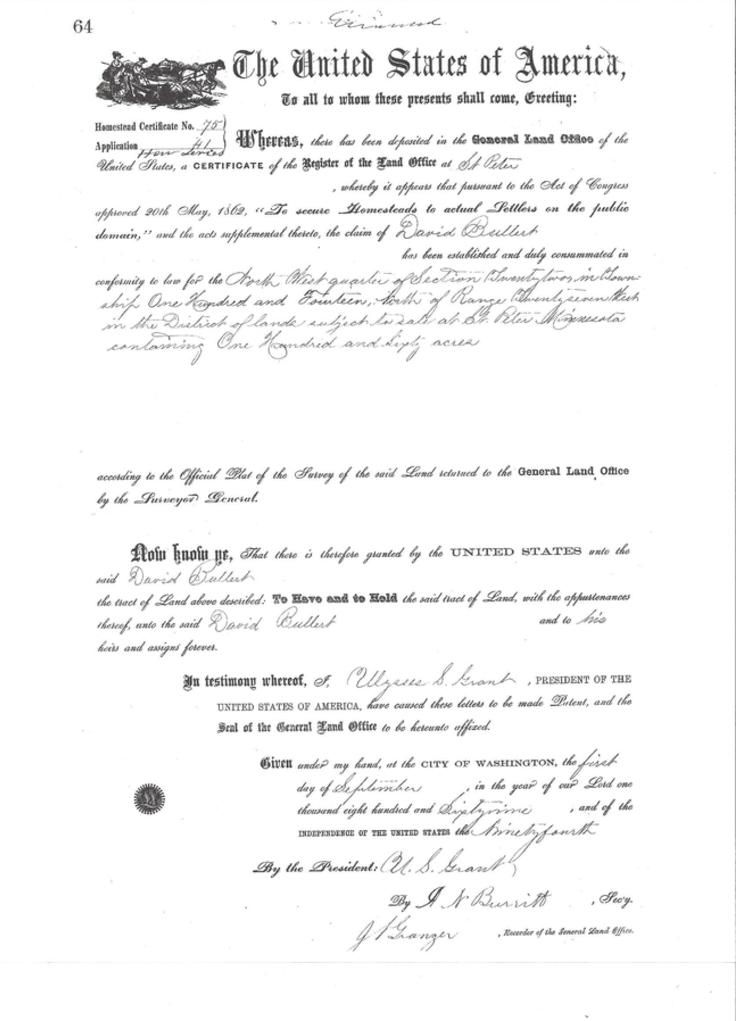 64
The United States of America,
To all to whom these presents shall come, Greeting:
Homestead Certificate No. 75
Application 41
Whereas, there has been deposited in the General Land Office of the
United States, a CERTIFICATE of the Register of the Land Office at St Peter
, whereby it appears that pursuant to the Act of Congress
approved 20th May, 1862, "To secure Homesteads to actual Settlers on the public
domain," and the acts supplemental thereto, the claim of David Bullert
has been established and duly consummated in
conformity to law for the North West quarter of Section Twenty two, in Town-
ship One Hundred and Fourteen, North of Range Twenty seven West
in the District of lands subject to sale at St. Peter Minnesota
containing One Hundred and Sixty acres
according to the Official Plat of the Survey of the said Land returned to the General Land Office
by the Surveyor General.
Now know ye, That there is therefore granted by the UNITED STATES unto the
said David Bullert
the tract of Land above described: To Have and to Hold the said tract of Land, with the appurtenances
thereof, unto the said David Bullert and to his
heirs and assigns forever.
In testimony whereof, I, Ulysses S. Grant, PRESIDENT OF THE
UNITED STATES OF AMERICA, have caused these letters to be made Patent, and the
Seal of the General Land Office to be hereunto affixed.
Given under my hand, at the CITY OF WASHINGTON, the first
day of September, in the year of our Lord one
thousand eight hundred and Sixty nine, and of the
INDEPENDENCE OF THE UNITED STATES the Ninety fourth
By the President: U. S. Grant
By N Burritt, Sec'y.
Granger, Recorder of the General Land Office.